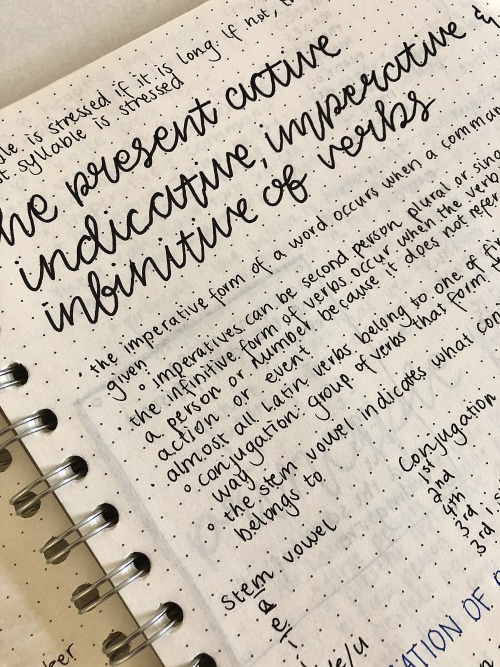 is stressed if it is long. If not,
syllable is stressed
the present active
indicative, imperative &
infinitive of verbs
• the imperative form of a word occurs when a
given
◦ imperatives can be second person plural or
the infinitive form of verbs occur when the verb
a person or number because it does not
action or event
almost all Latin verbs belong to one of
◦ conjugation: group of verbs that form
way
◦ the stem vowel indicates what
belongs to
Stem vowel Conjugation
1st
ē 2nd
4th
3rd
3rd
OF